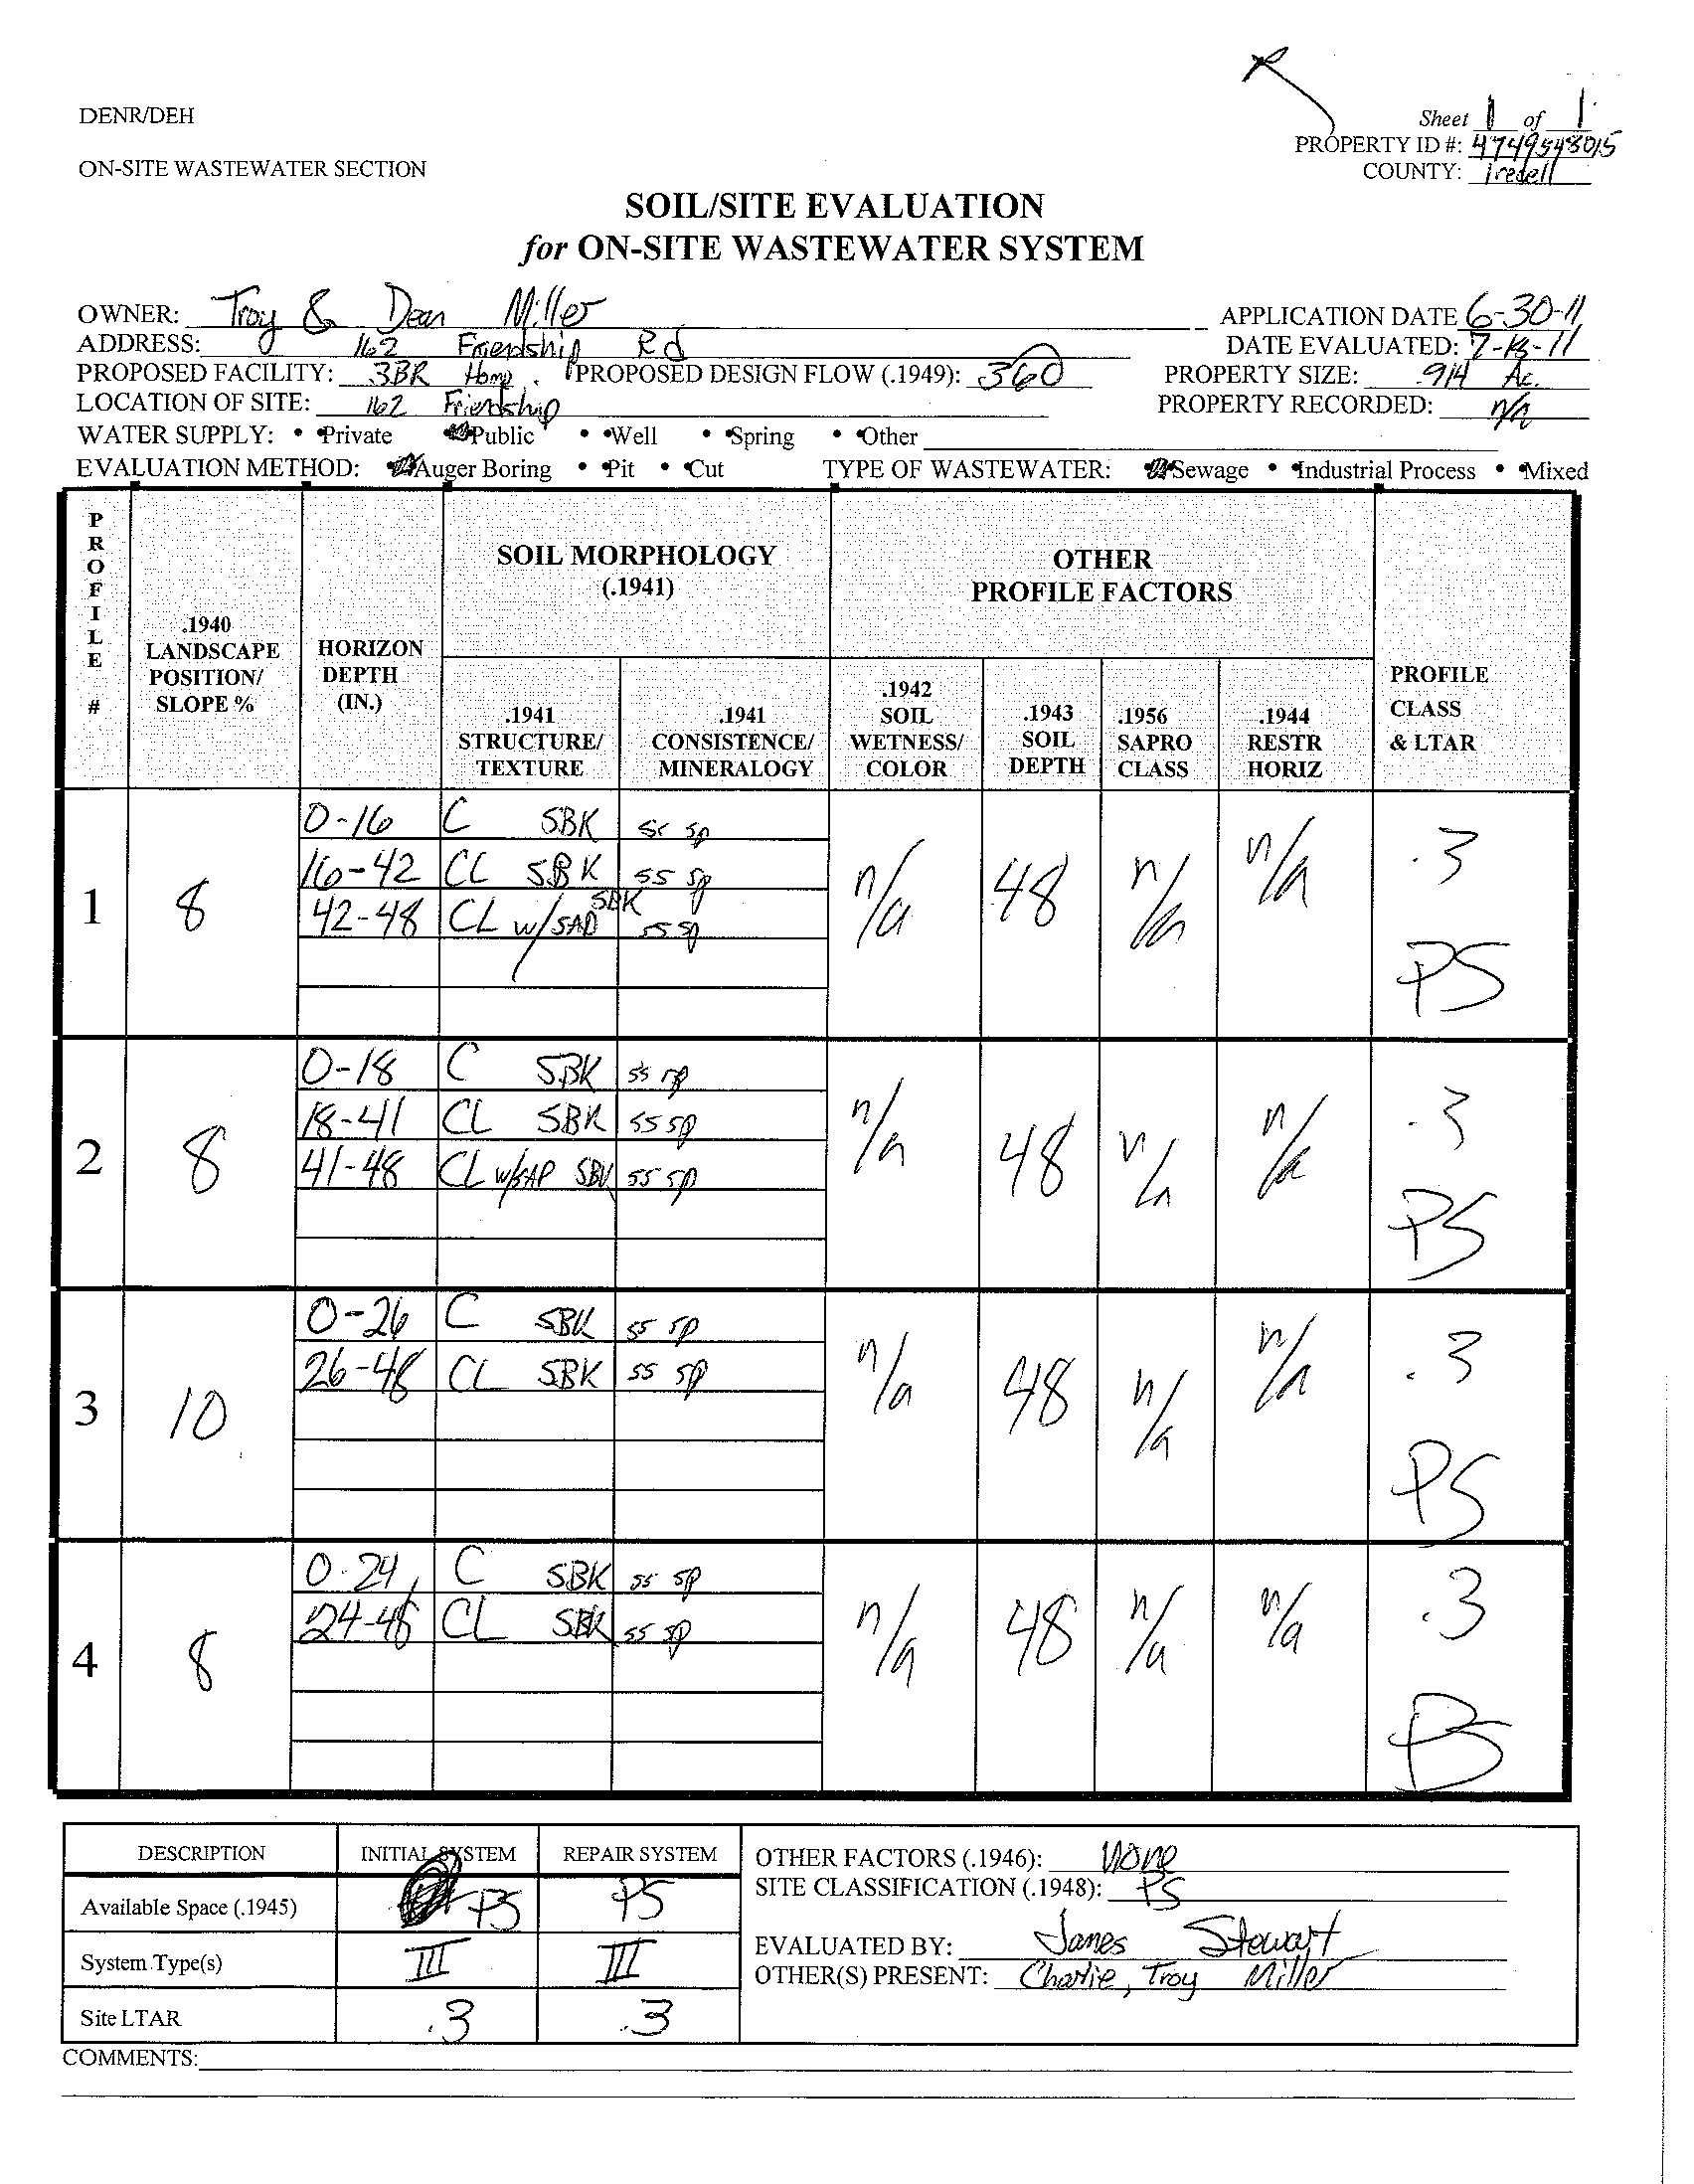 DENR/DEH
Sheet 1 of 1
PROPERTY ID #: 4749548015
ON-SITE WASTEWATER SECTION
COUNTY: Iredell
SOIL/SITE EVALUATION
for ON-SITE WASTEWATER SYSTEM
OWNER: Troy & Dean Miller APPLICATION DATE 6-30-11
ADDRESS: 162 Friendship Rd DATE EVALUATED: 7-13-11
PROPOSED FACILITY: 3BR Home. PROPOSED DESIGN FLOW (.1949): 360 PROPERTY SIZE: .914 Ac.
LOCATION OF SITE: 162 Friendship PROPERTY RECORDED: n/a
WATER SUPPLY: • Private Public • Well • Spring • Other
EVALUATION METHOD: Auger Boring • Pit • Cut TYPE OF WASTEWATER: Sewage • Industrial Process • Mixed
PROFILE #
.1940 LANDSCAPE POSITION/ SLOPE %
HORIZON DEPTH (IN.)
SOIL MORPHOLOGY (.1941)
.1941 STRUCTURE/ TEXTURE
.1941 CONSISTENCE/ MINERALOGY
OTHER PROFILE FACTORS
.1942 SOIL WETNESS/ COLOR
.1943 SOIL DEPTH
.1956 SAPRO CLASS
.1944 RESTR HORIZ
PROFILE CLASS & LTAR
1 8 n/a 48 n/a n/a .3 PS
0-16 C SBK ss sp
16-42 CL SBK ss sp
42-48 CL w/SAP SBK ss sp
2 8 n/a 48 n/a n/a .3 PS
0-18 C SBK ss sp
18-41 CL SBK ss sp
41-48 CL w/SAP SBK ss sp
3 10 n/a 48 n/a n/a .3 PS
0-26 C SBK ss sp
26-48 CL SBK ss sp
4 8 n/a 48 n/a n/a .3 PS
0-24 C SBK ss sp
24-48 CL SBK ss sp
DESCRIPTION INITIAL SYSTEM REPAIR SYSTEM
Available Space (.1945) PS PS
System Type(s) III III
Site LTAR .3 .3
OTHER FACTORS (.1946): None
SITE CLASSIFICATION (.1948): PS
EVALUATED BY: James Stewart
OTHER(S) PRESENT: Charlie, Troy Miller
COMMENTS: